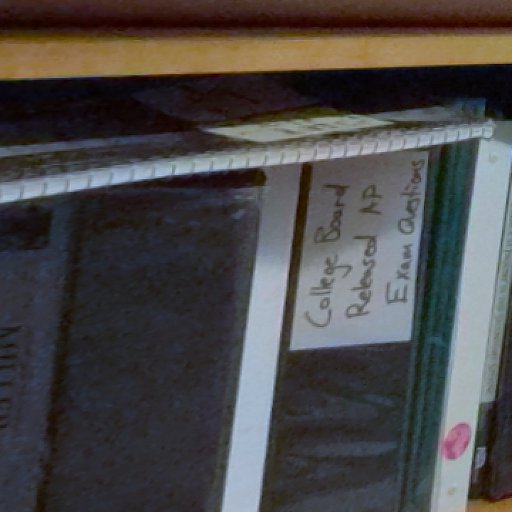 College Board
Released AP
Exam Questions